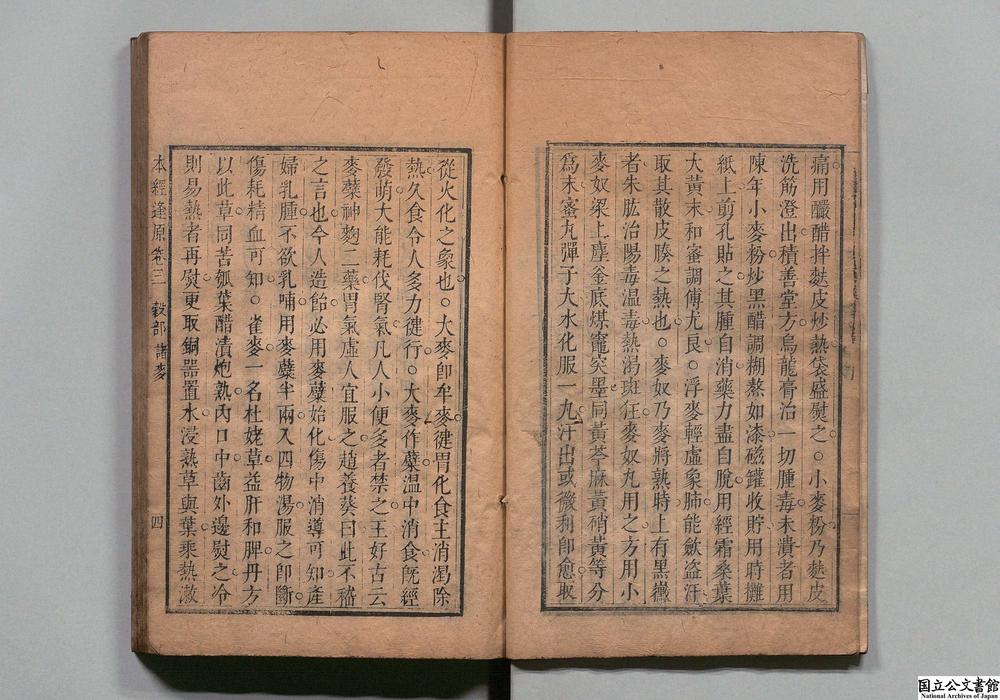 痛用釅醋拌麩皮炒熱袋盛熨之○小麥粉乃麩皮
洗筋澄出積善堂方烏龍膏治一切腫毒未潰者用
陳年小麥粉炒黑醋調糊熬如漆磁罐收貯用時攤
紙上剪孔貼之其腫自消藥力盡自脫用經霜桑葉
大黃末和蜜調傅尤良○浮麥輕虛象肺能歛盜汗
取其散皮腠之熱也○麥奴乃麥將熟時上有黑黴
者朱肱治陽毒温毒熱渴斑狂麥奴丸用之方用小
麥奴梁上塵釜底煤竈突墨同黃芩麻黃硝黃等分
爲末蜜丸彈子大水化服一丸汗出或微利卽愈取
從火化之象也○大麥卽牟麥健胃化食主消渴除
熱久食令人多力健行○大麥作蘗温中消食旣經
發萌大能耗伐腎氣凡人小便多者禁之王好古云
麥蘗神麴二藥胃氣虛人宜服之趙養葵曰此不稽
之言也今人造飴必用麥蘗始化傷中消導可知產
婦乳腫不欲乳哺用麥蘗半兩入四物湯服之卽斷
傷耗精血可知○雀麥一名杜姥草益肝和脾丹方
以此草同苦瓠葉醋漬炮熟內口中齒外邊熨之冷
則易熱者再熨更取銅器置水浸熟草與葉乘熱漱
本經逢原卷三 穀部 諸麥 四
国立公文書館
National Archives of Japan